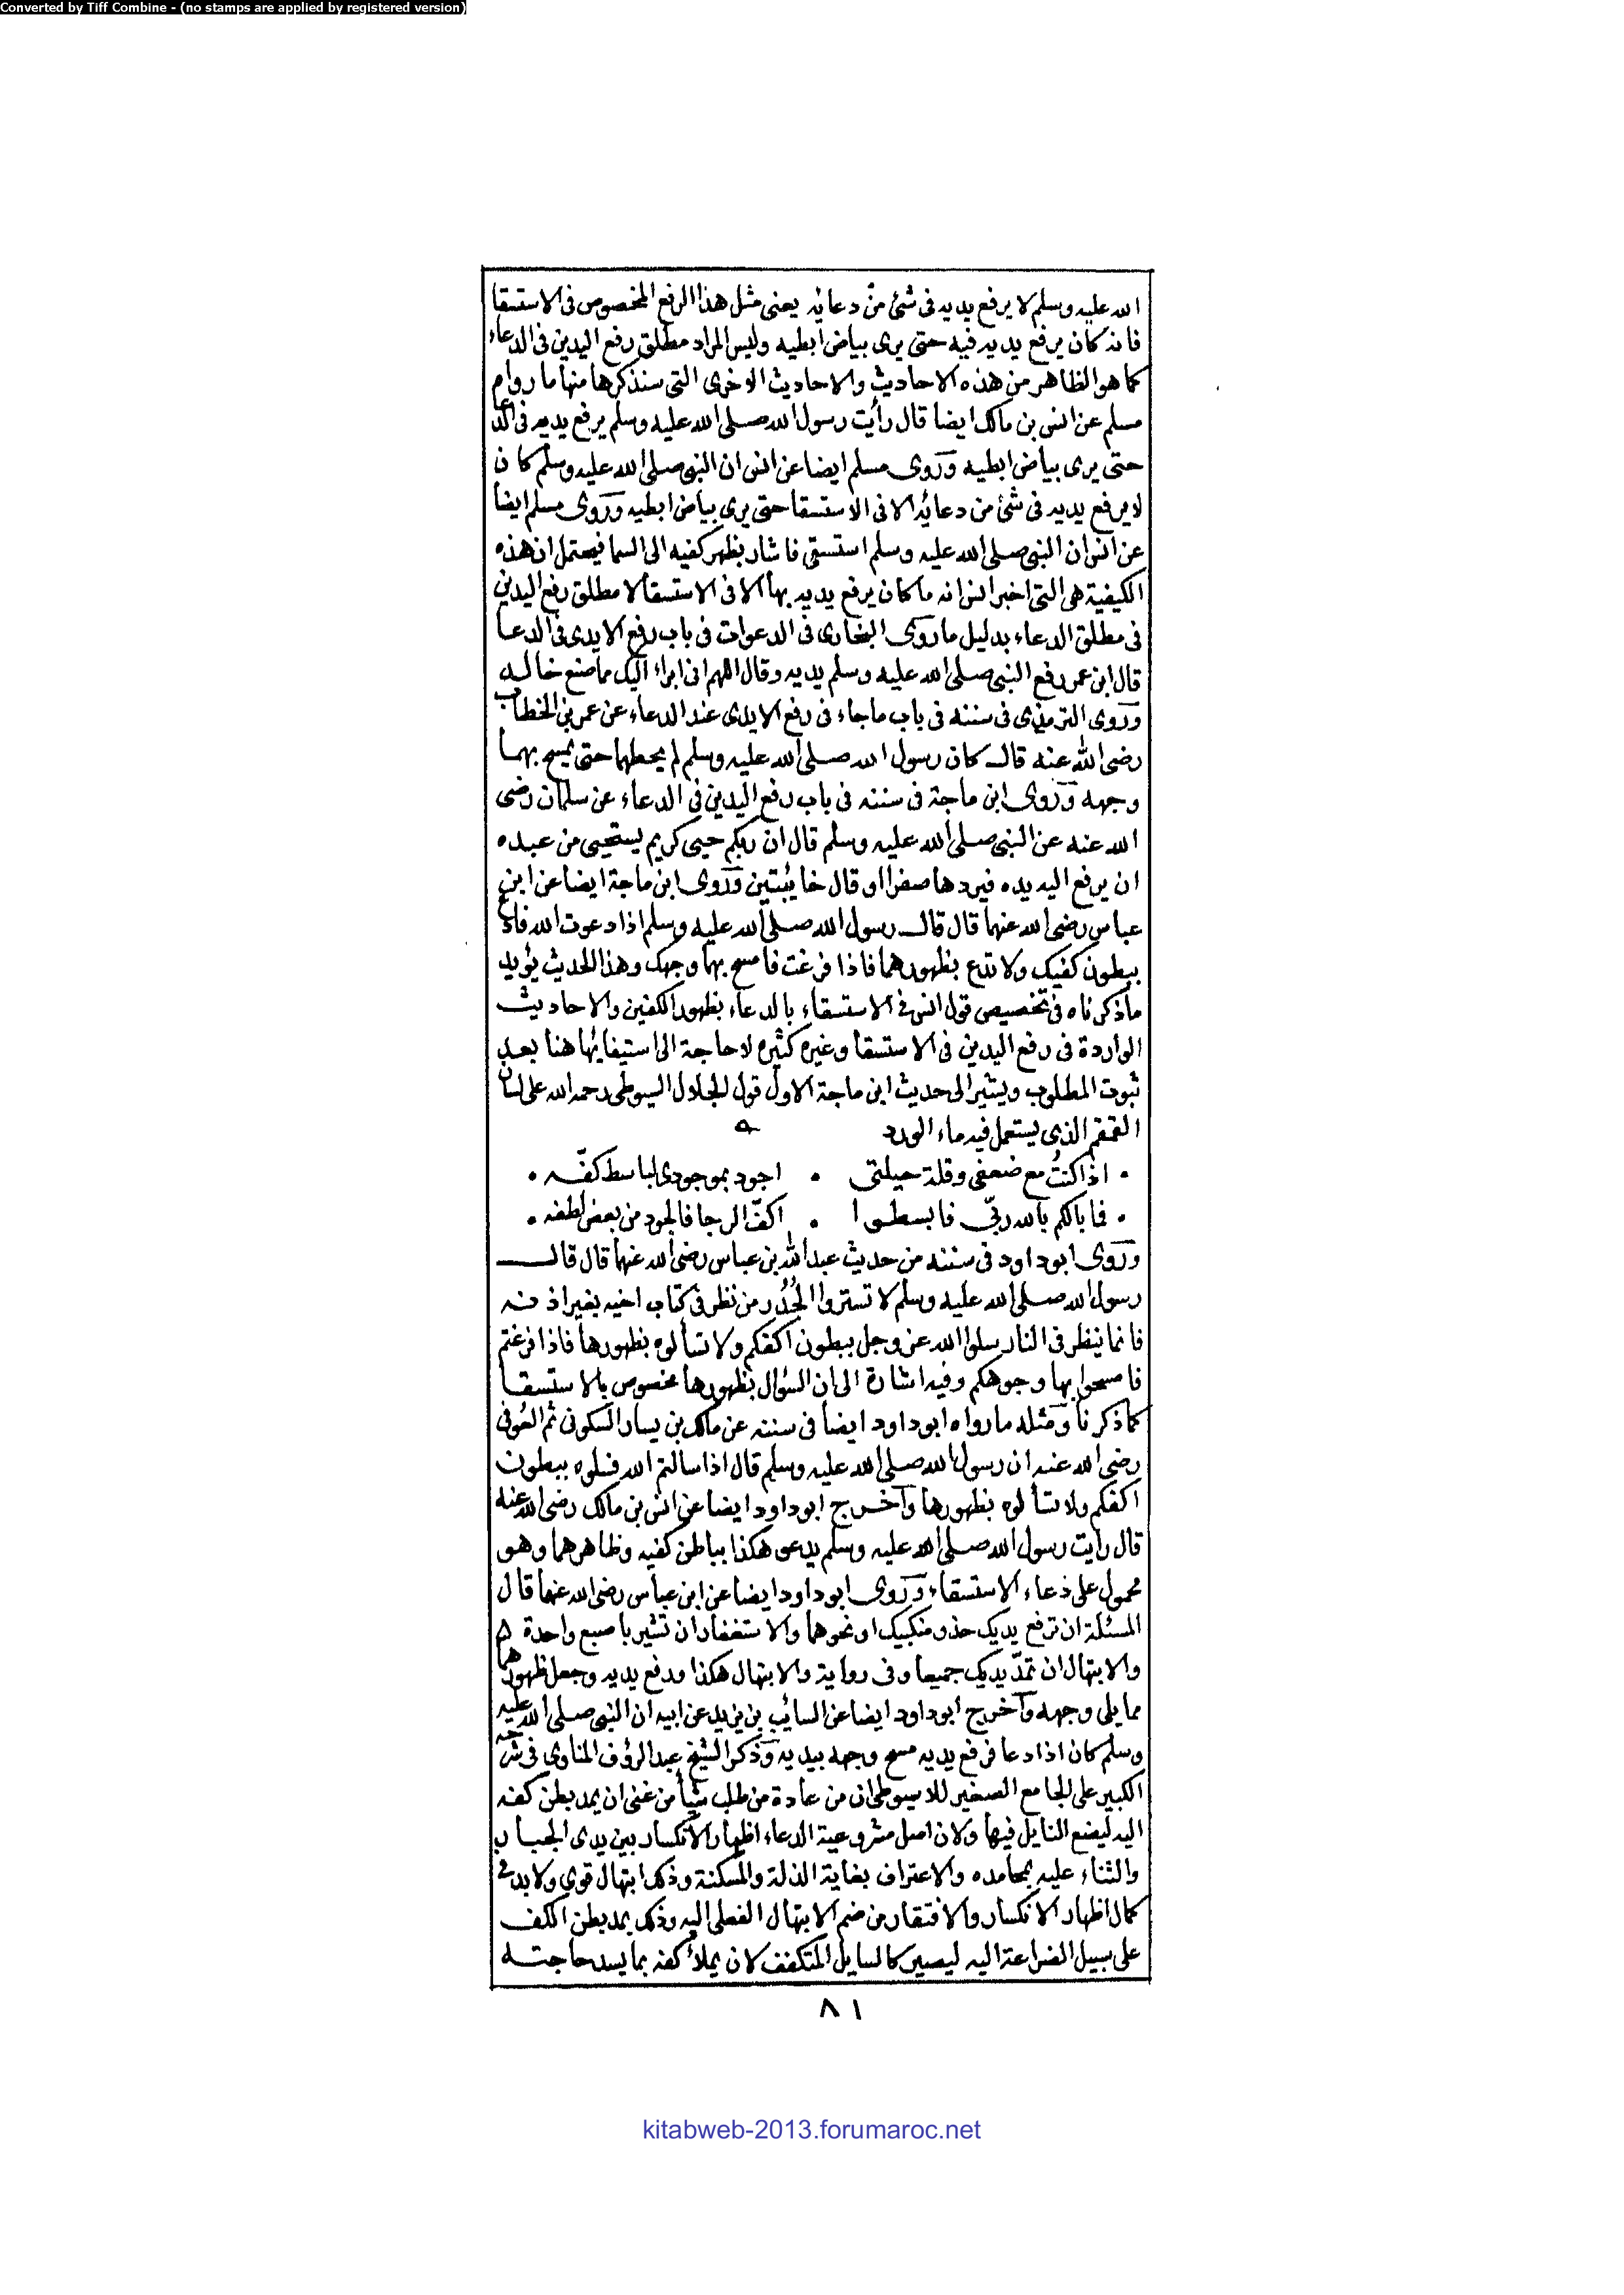 Converted by Tiff Combine - (no stamps are applied by registered version)
الله عليه وسلم لا يرفع يديه فى شئ من دعائه يعنى مثل هذا الرفع المخصوص فى الاستسقا
فانه كان يرفع يديه فيه حتى يرى بياض ابطيه وليس المراد مطلق رفع اليدين فى الدعاء
كما هو الظاهر من هذه الاحاديث والاحاديث الاخرى التى سنذكرها منها ما رواه
مسلم عن انس بن مالك ايضا قال رأيت رسول الله صلى الله عليه وسلم يرفع يديه فى الدعا
حتى يرى بياض ابطيه وروى مسلم ايضا عن انس ان النبى صلى الله عليه وسلم كان
لا يرفع يديه فى شئ من دعائه الا فى الاستسقا حتى يرى بياض ابطيه وروى مسلم ايضا
عن انس ان النبى صلى الله عليه وسلم استسقى فاشار بظهر كفيه الى السما فيحتمل ان هذه
الكيفية هى التى اخبر انس انه ما كان يرفع يديه بها الا فى الاستسقا لا مطلق رفع اليدين
فى مطلق الدعاء بدليل ما روى البخارى فى الدعوات فى باب رفع الايدى فى الدعا
قال ابن عمر رفع النبى صلى الله عليه وسلم يديه وقال اللهم انى ابراء اليك مما صنع خالد
وروى الترمذى فى سننه فى باب ما جاء فى رفع الايدى عند الدعاء عن عمر بن الخطاب
رضى الله عنه قال كان رسول الله صلى الله عليه وسلم لم يحطهما حتى يمسح بهما
وجهه وروى ابن ماجة فى سننه فى باب رفع اليدين فى الدعاء عن سلمان رضى
الله عنه عن النبى صلى الله عليه وسلم قال ان ربكم حيى كريم يستحيى من عبده
ان يرفع اليه يده فيردها صفرا او قال خائبتين وروى ابن ماجة ايضا عن ابن
عباس رضى الله عنهما قال قال رسول الله صلى الله عليه وسلم اذا دعوت الله فادع
ببطون كفيك ولا تدع بظهورهما فاذا فرغت فامسح بهما وجهك وهذا الحديث يؤيد
ما ذكرناه فى تخصيص قول انس فى الاستسقاء بالدعاء بظهور الكفين والاحاديث
الواردة فى رفع اليدين فى الاستسقا وغيره كثيره لا حاجة الى استيفائها هنا بعد
ثبوت المطلوب ويشير الى حديث ابن ماجة الاول قول الجلال السيوطى رحمه الله على لسان
القمقم الذى يستعمل فيه ماء الورد
• اذا كنتُ مع ضعفى وقلة حيلتى • اجود بموجودى لباسط كفّه •
• فما بالكم بالله ربّى فابسطوا • اكفّ الرجا فالجود من بعض لطفه •
وروى ابو داود فى سننه من حديث عبد الله بن عباس رضى الله عنهما قال قال
رسول الله صلى الله عليه وسلم لا تستروا الجُدُر من نظر فى كتاب اخيه بغير اذنه
فانما ينظر فى النار سلوا الله عز وجل ببطون اكفكم ولا تسألوه بظهورها فاذا فرغتم
فامسحوا بها وجوهكم وفيه اشارة الى ان السؤال بظهورها مخصوص بالاستسقا
كما ذكرنا ومثله ما رواه ابو داود ايضا فى سننه عن مالك بن يسار السكونى ثم العوفى
رضى الله عنه ان رسول الله صلى الله عليه وسلم قال اذا سالتم الله فسلوه ببطون
اكفكم ولا تسألوه بظهورها واخرج ابو داود ايضا عن انس بن مالك رضى الله عنه
قال رايت رسول الله صلى الله عليه وسلم يدعو هكذا بباطن كفيه وظاهرهما وهو
محمول على دعاء الاستسقاء وروى ابو داود ايضا عن ابن عباس رضى الله عنهما قال
المسئلة ان ترفع يديك حذو منكبيك او نحوهما والاستغفار ان تشير باصبع واحدة
والابتهال ان تمدّ يديك جميعا وفى رواية والابتهال هكذا ورفع يديه وجعل ظهورهما
مما يلى وجهه واخرج ابو داود ايضا عن السائب بن يزيد عن ابيه ان النبى صلى الله عليه
وسلم كان اذا دعا فرفع يديه مسح وجهه بيديه وذكر الشيخ عبد الرؤف المناوى فى شرحه
الكبير على الجامع الصغير للاسيوطى ان من عادة من طلب شيأ من غنى ان يمد بطن كفه
اليه ليضع النايل فيها ولان اصل مشروعية الدعاء اظهار الانكسار بين يدى الجباب
والثناء عليه بمحامده والاعتراف بغاية الذلة والمسكنة وذلك ابتهال قوى ولا بد فى
كمال اظهار الانكسار والافتقار من ضم الابتهال الفعلى اليه وذلك بمد بطن الكف
على سبيل الضراعة اليه ليصير كالسايل المتكفف لان يملأ كفه بما يسد حاجته
٨١
kitabweb-2013.forumaroc.net